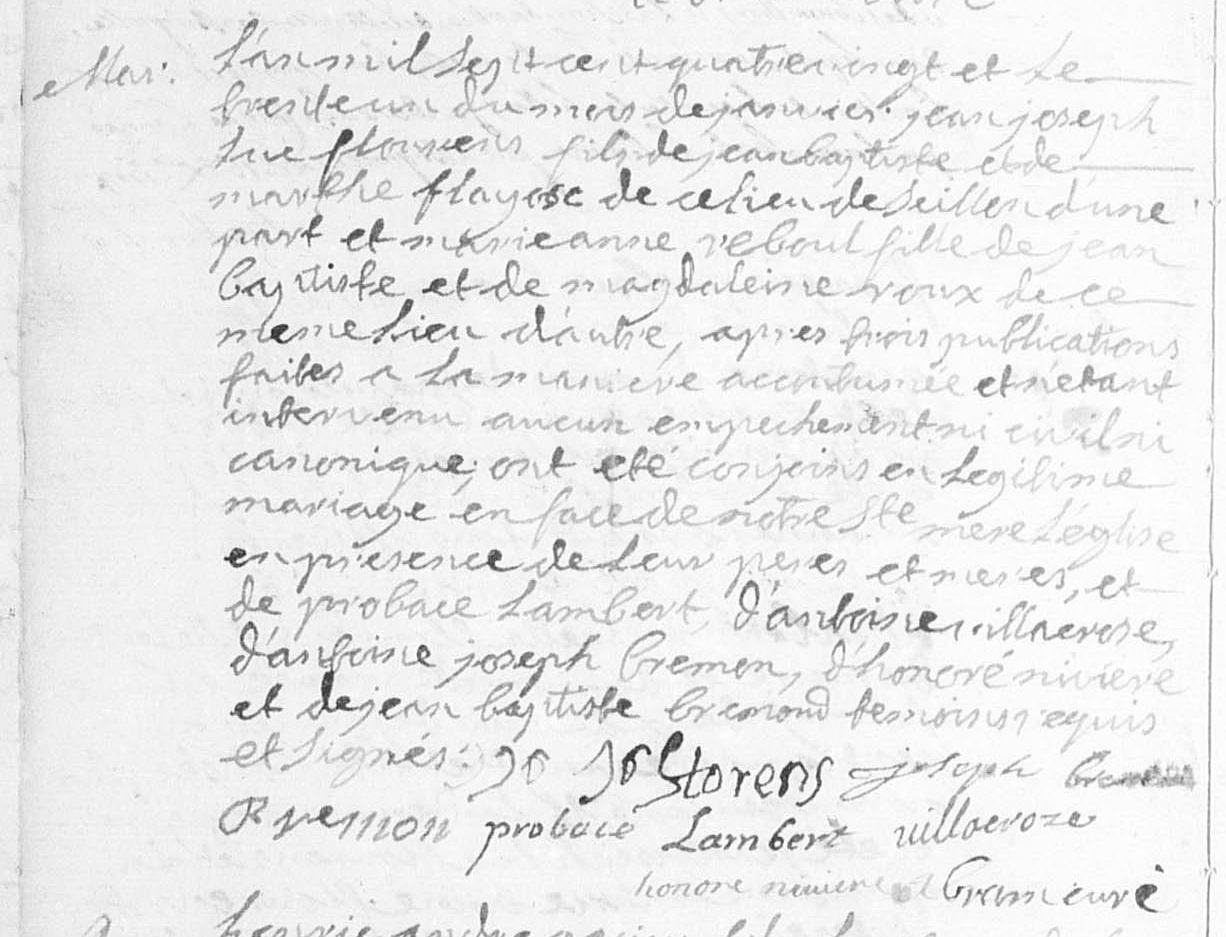 Mar:
L'an mil sept cent quatre vingt et le
trente un du mois de janvier jean joseph
luc flourens fils de jean baptiste et de
marthe flayosc de ce lieu de seillon d'une
part et marie anne reboul fille de jean
baptiste et de magdaleine roux de ce
meme lieu d'autre, apres trois publications
faites a la maniere accoutumée et n'étant
intervenu aucun empechement ni civil ni
canonique, ont eté conjoins en legitime
mariage en face de notre Ste mere L'église
en presence de leur peres et meres, et
de probace Lambert, d'antoine villaerose,
d'antoine joseph bremon, d'honoré niviere
et de jean baptiste bremond temoins requis
et signés: florens joseph
Bremon probace Lambert villaeroze
honore niviere bram curé